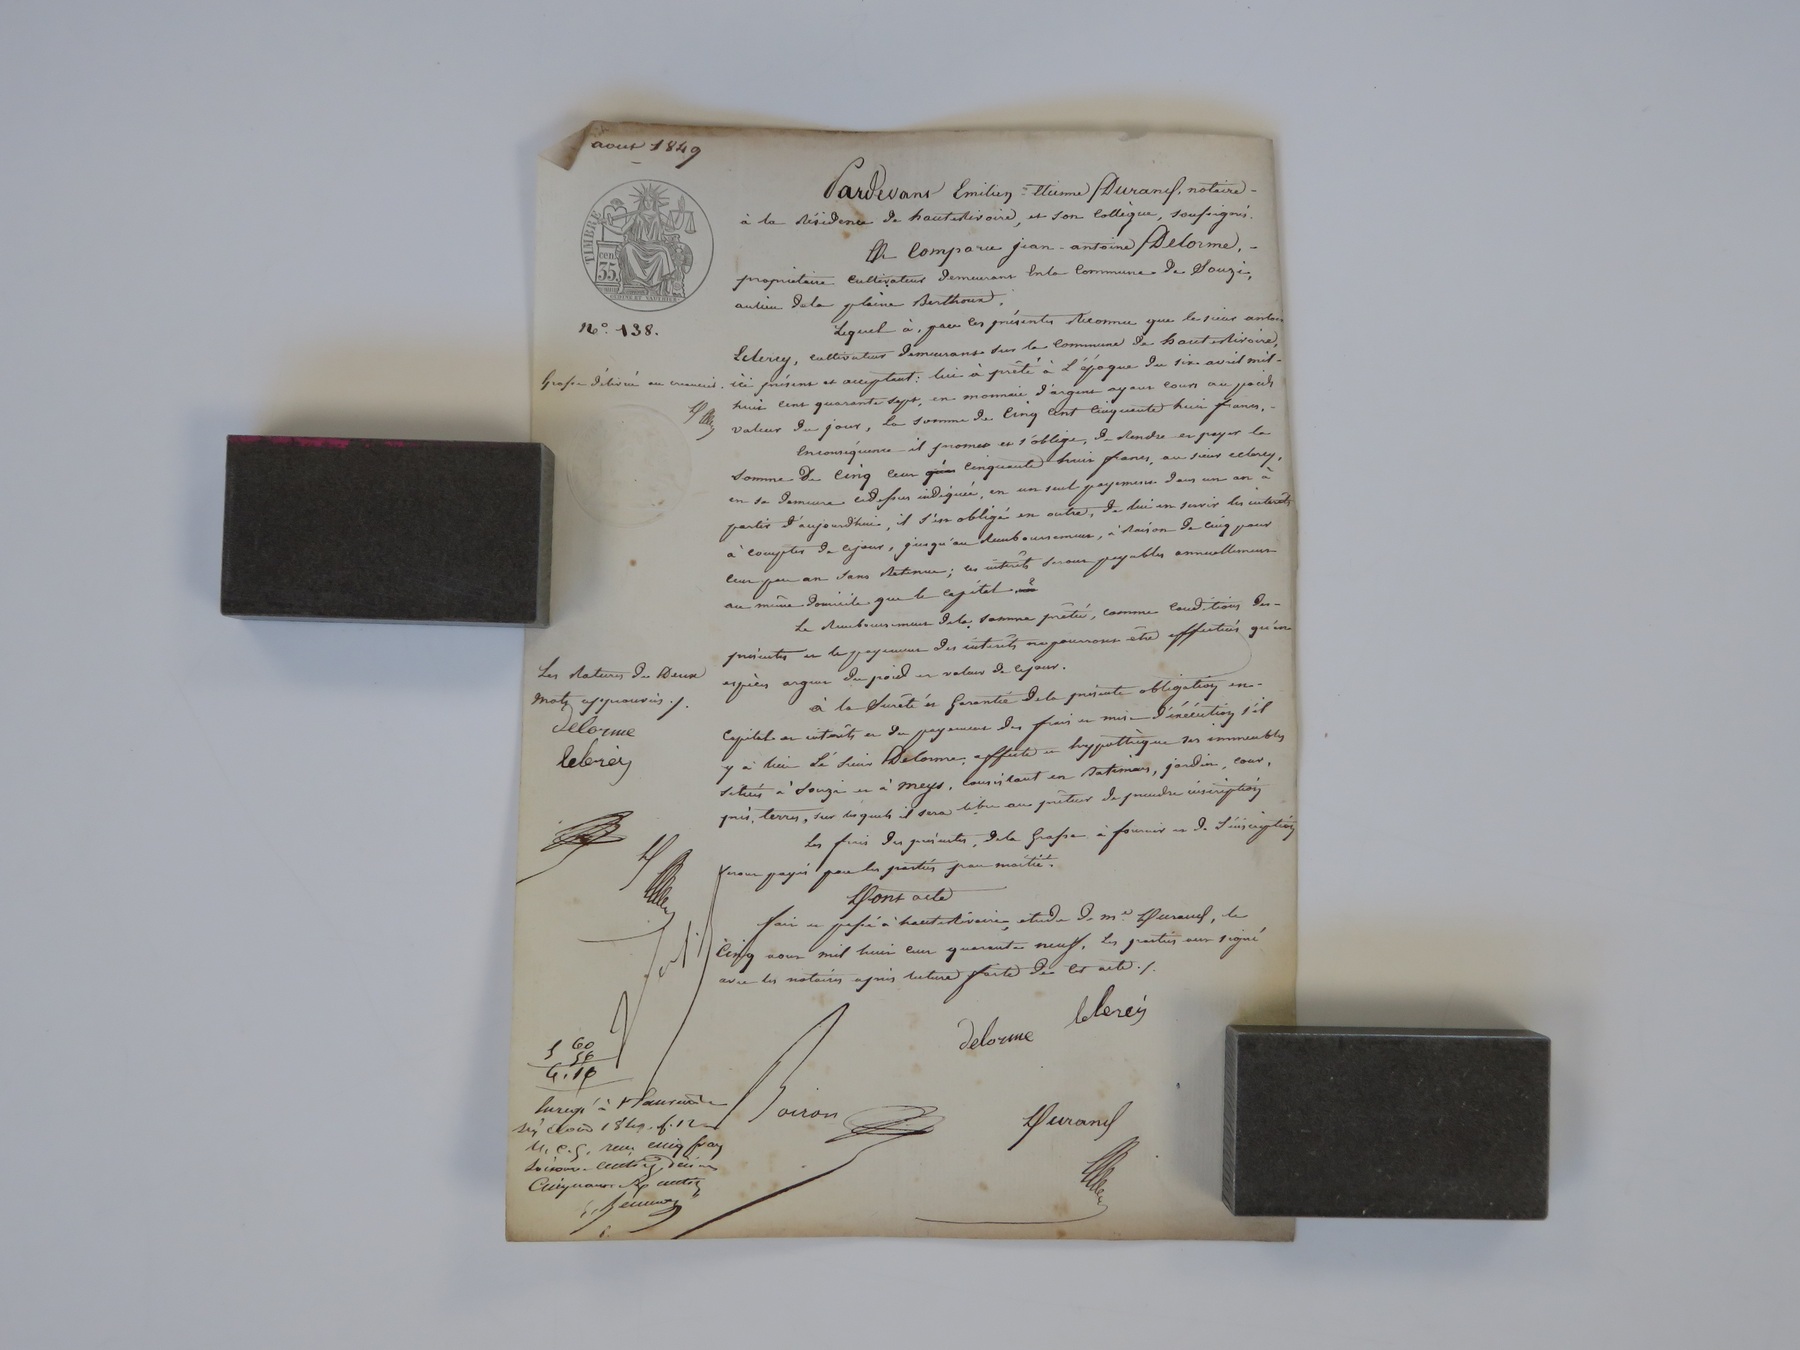 aout 1849
TIMBRE
cen
35
No. 138.
Pardevant Emilien-Etienne Durand, notaire-
à la Résidence de hauterivoire, et son Collègue, soussignés.
A Comparu jean-antoine Delorme,-
propriétaire cultivateur demeurant en la Commune de Souzi,
au lieu de la plaine Berthoux.
Lequel à, par les présentes Reconnu que le sieur antoine
Leclercq, cultivateur demeurant sur la Commune de hauterivoire,
ici présent et acceptant: lui à prêté à l'époque du six avril mil-
huit cent quarante sept, en monnaie d'argent ayant cours au poids
valeur du jour, la somme de Cinq Cent Cinquante huit francs,-
Enconséquence il promet et s'oblige, de Rendre et payer la
somme de Cinq Cent Cinquante huit francs, au sieur
en sa demeure cidessus indiquée, en un seul payement dans un an à
partir d'aujourdhui, il s'est obligé en outre, de lui en servir les intérêts
à compter de cejour, jusqu'au Remboursement, à Raison de cinq pour
cent par an sans Retenue; ces intérêts seront payables annuellement
au même domicile que le Capital
Le Remboursement dela somme prêtée, comme conditions des-
présentes et le payement des intérêts ne pourront être effectués qu'en
espèces argent du poid et valeur de cejour.
à la Sûreté et Garantie dela présente obligation en-
Capital et intérêts et du payement des frais et mise d'exécution s'il
y à lieu Le sieur Delorme, affecte et hypothèque ses immeubles
situés à Souzi et à Meys, Consistant en Batimens, jardin, cour,
prés, terres, sur lesquels il sera libre au prêteur de prendre inscription
Les frais des présentes, dela Grosse à fournir et de l'inscription
seront payés par les parties par moitié.
Dont acte
fait et passé à hauterivoire, etude de me Durand, le
Cinq aout mil huit cent quarante neuf, Les parties ont signé
avec les notaires après lecture faite de Cet acte ./.
Grosse délivrée au creancier.
Les Ratures de Deux
Mots approuvées ./.
delorme
leclercq
delorme
leclercq
Durand
5 60
56
6.16